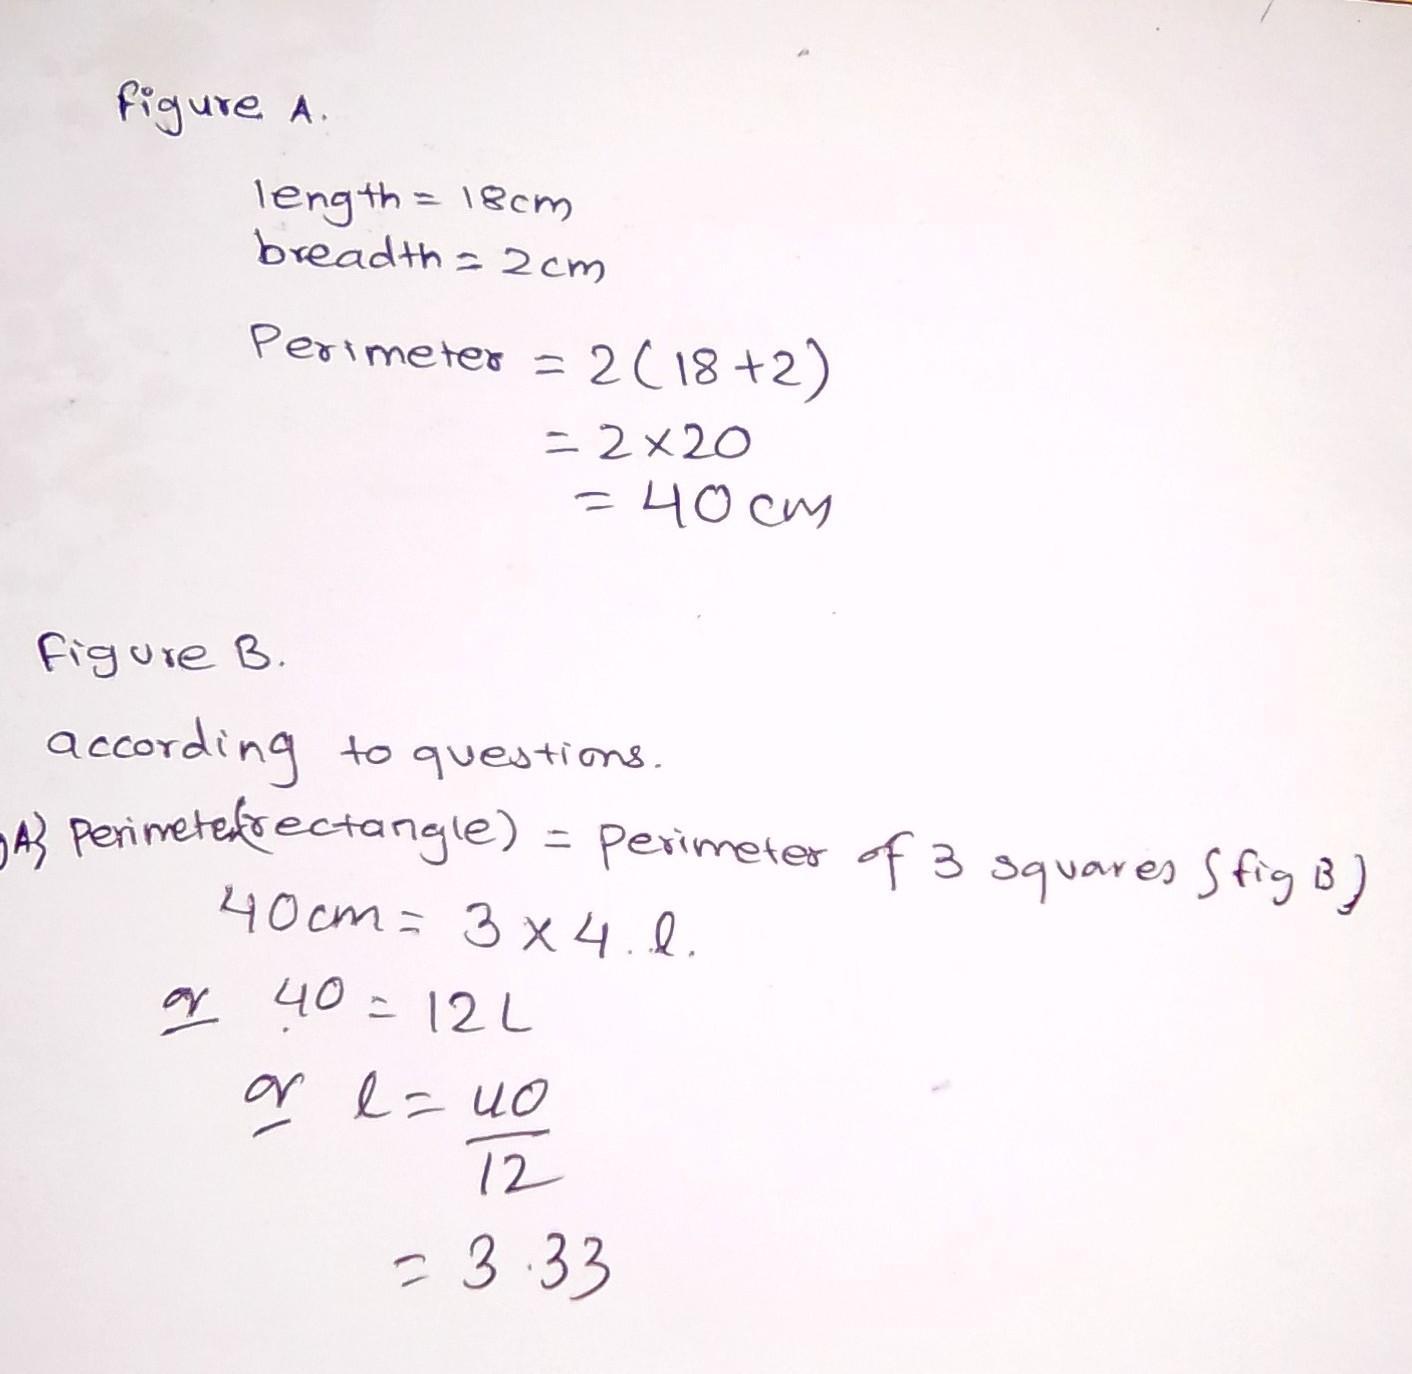 figure A.
length = 18cm
breadth = 2cm
Perimeter = 2(18+2)
= 2×20
= 40 cm
figure B.
according to questions.
A} Perimeter(rectangle) = Perimeter of 3 squares {fig B}
40cm = 3×4.l.
or 40 = 12L
or l = 40
12
= 3.33